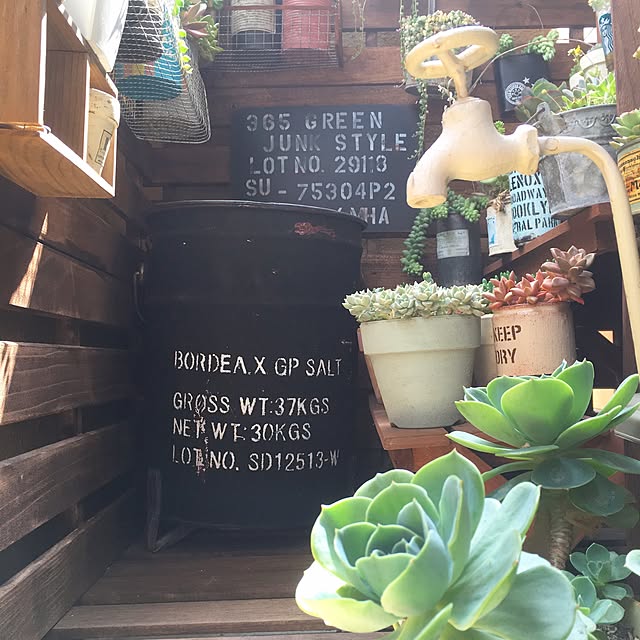 365 GREEN
JUNK STYLE
LOT NO. 29113
SU - 75304P2
MHA
BORDEA.X GP SALT
GROSS WT:37KGS
NET WT:30KGS
LOT NO. SD12513-W
KEEP
DRY
LENOX
OADWAY
OOKLY
ERAL PARK